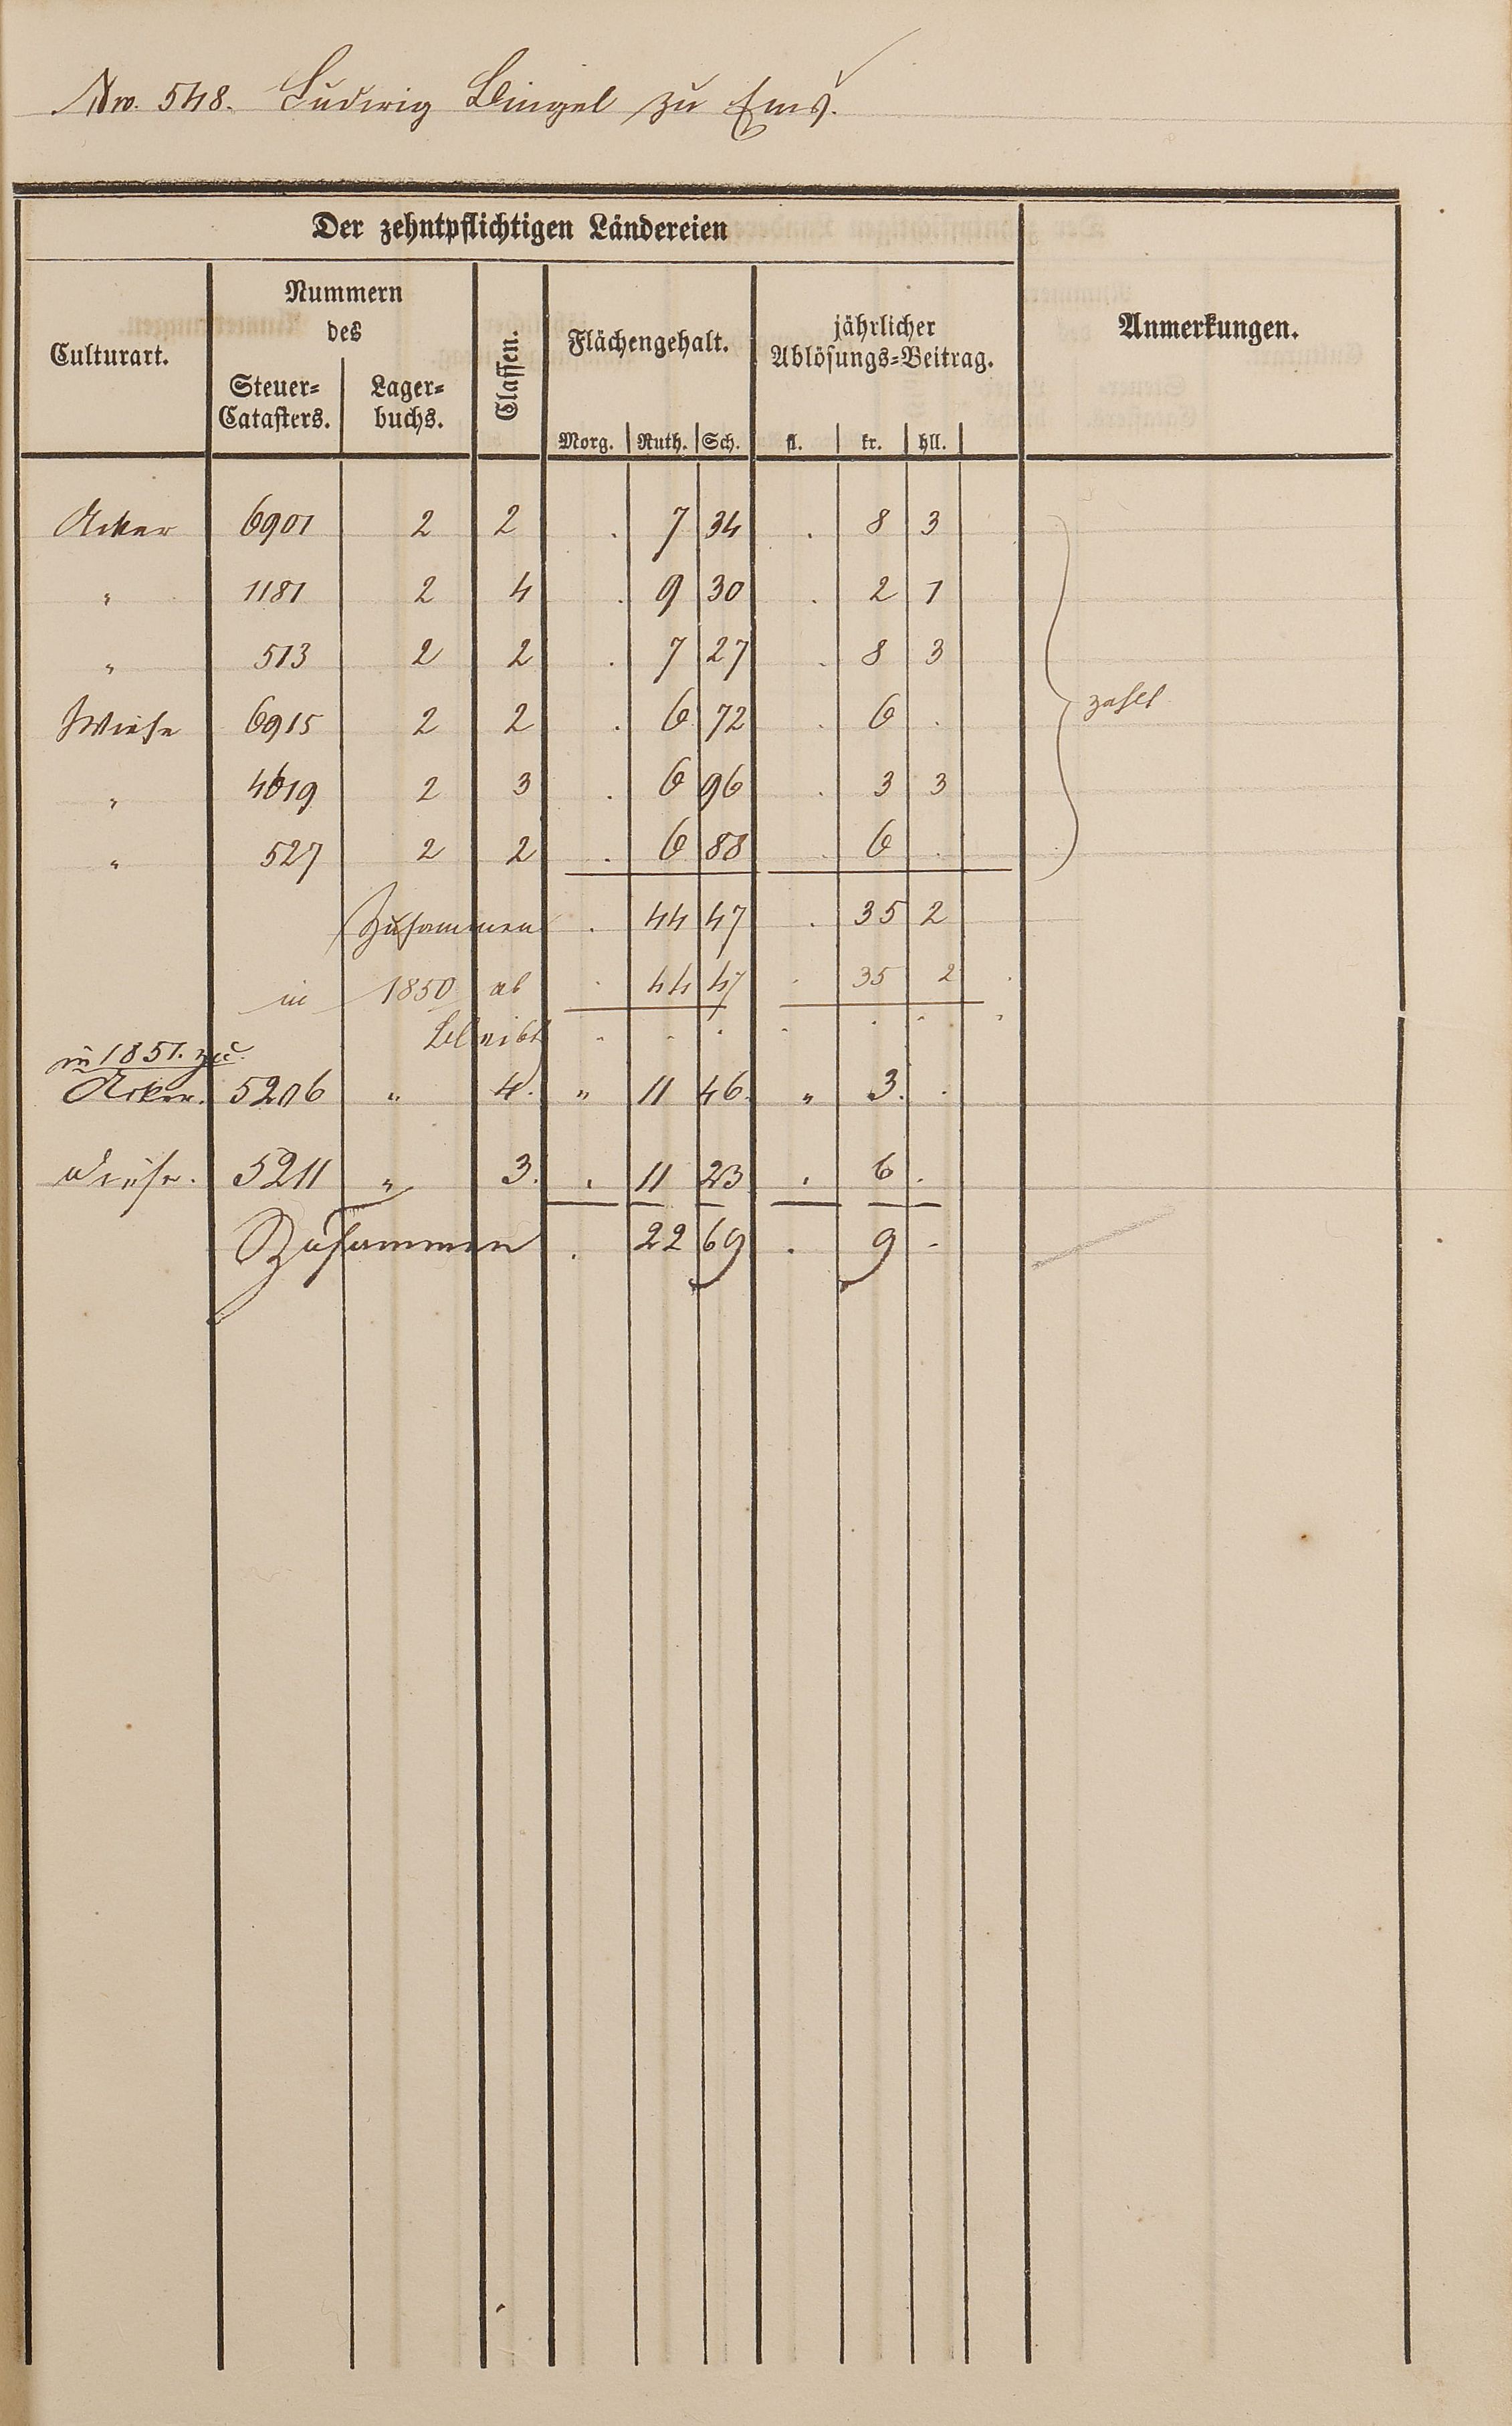 Nro. 548. Ludwig Bingel zu Ems.
Der zehntpflichtigen Ländereien
Culturart.
Nummern
des
Steuer-
Catasters.
Lager-
buchs.
Classen.
Flächengehalt.
Morg. Ruth. Sch.
jährlicher
Ablösungs-Beitrag.
fl. kr. hll.
Anmerkungen.
Acker 6901 2 2 . 7 34 . 8 3
" 1181 2 4 . 9 30 . 2 1
" 513 2 2 . 7 27 . 8 3
Wiese 6915 2 2 . 6 72 . 6 .
zahlt
" 4619 2 3 . 6 96 . 3 3
" 527 2 2 . 6 88 . 6 .
Zusammen . 44 47 . 35 2
in 1850 ab . 44 47 . 35 2
bleibt . . . . . .
in 1851. zu.
Acker. 5206 " 4. " 11 46. " 3. .
Wiese. 5211 " 3. . 11 23 . 6 .
Zusammen . 22 69 . 9 -